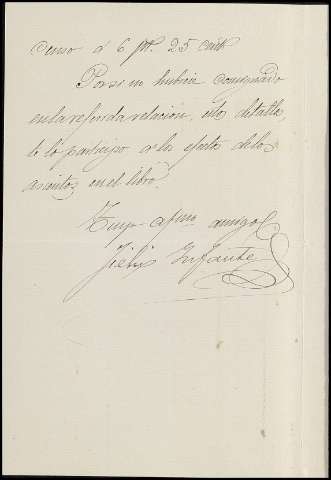 censo á 6 pts. 25 cents
Por si no hubiera consignado
en la referida relacion, estos detalles,
te lo participo a los efectos de los
asientos en el libro.
Tuyo afmo amigo
Felix Infante